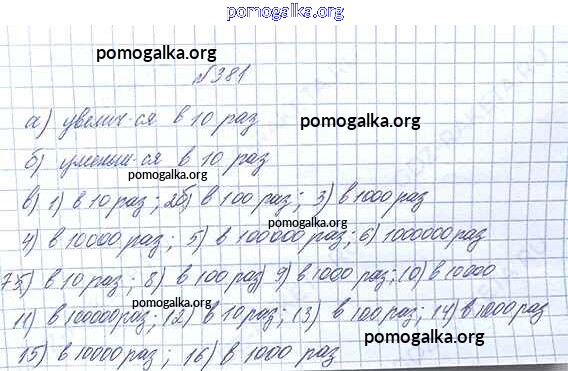 pomogalka.org
pomogalka.org
№381
а) увелич-ся в 10 раз
pomogalka.org
б) уменьш-ся в 10 раз
pomogalka.org
в) 1) в 10 раз; 2б) в 100 раз; 3) в 1000 раз
pomogalka.org
4) в 10000 раз; 5) в 100000 раз; 6) 1000000 раз
7б) в 10 раз; 8) в 100 раз 9) в 1000 раз; 10) в 10000
pomogalka.org
11) в 100000 раз; 12) в 10 раз; 13) в 100 раз; 14) в 1000 раз
pomogalka.org
15) в 10000 раз; 16) в 1000 раз